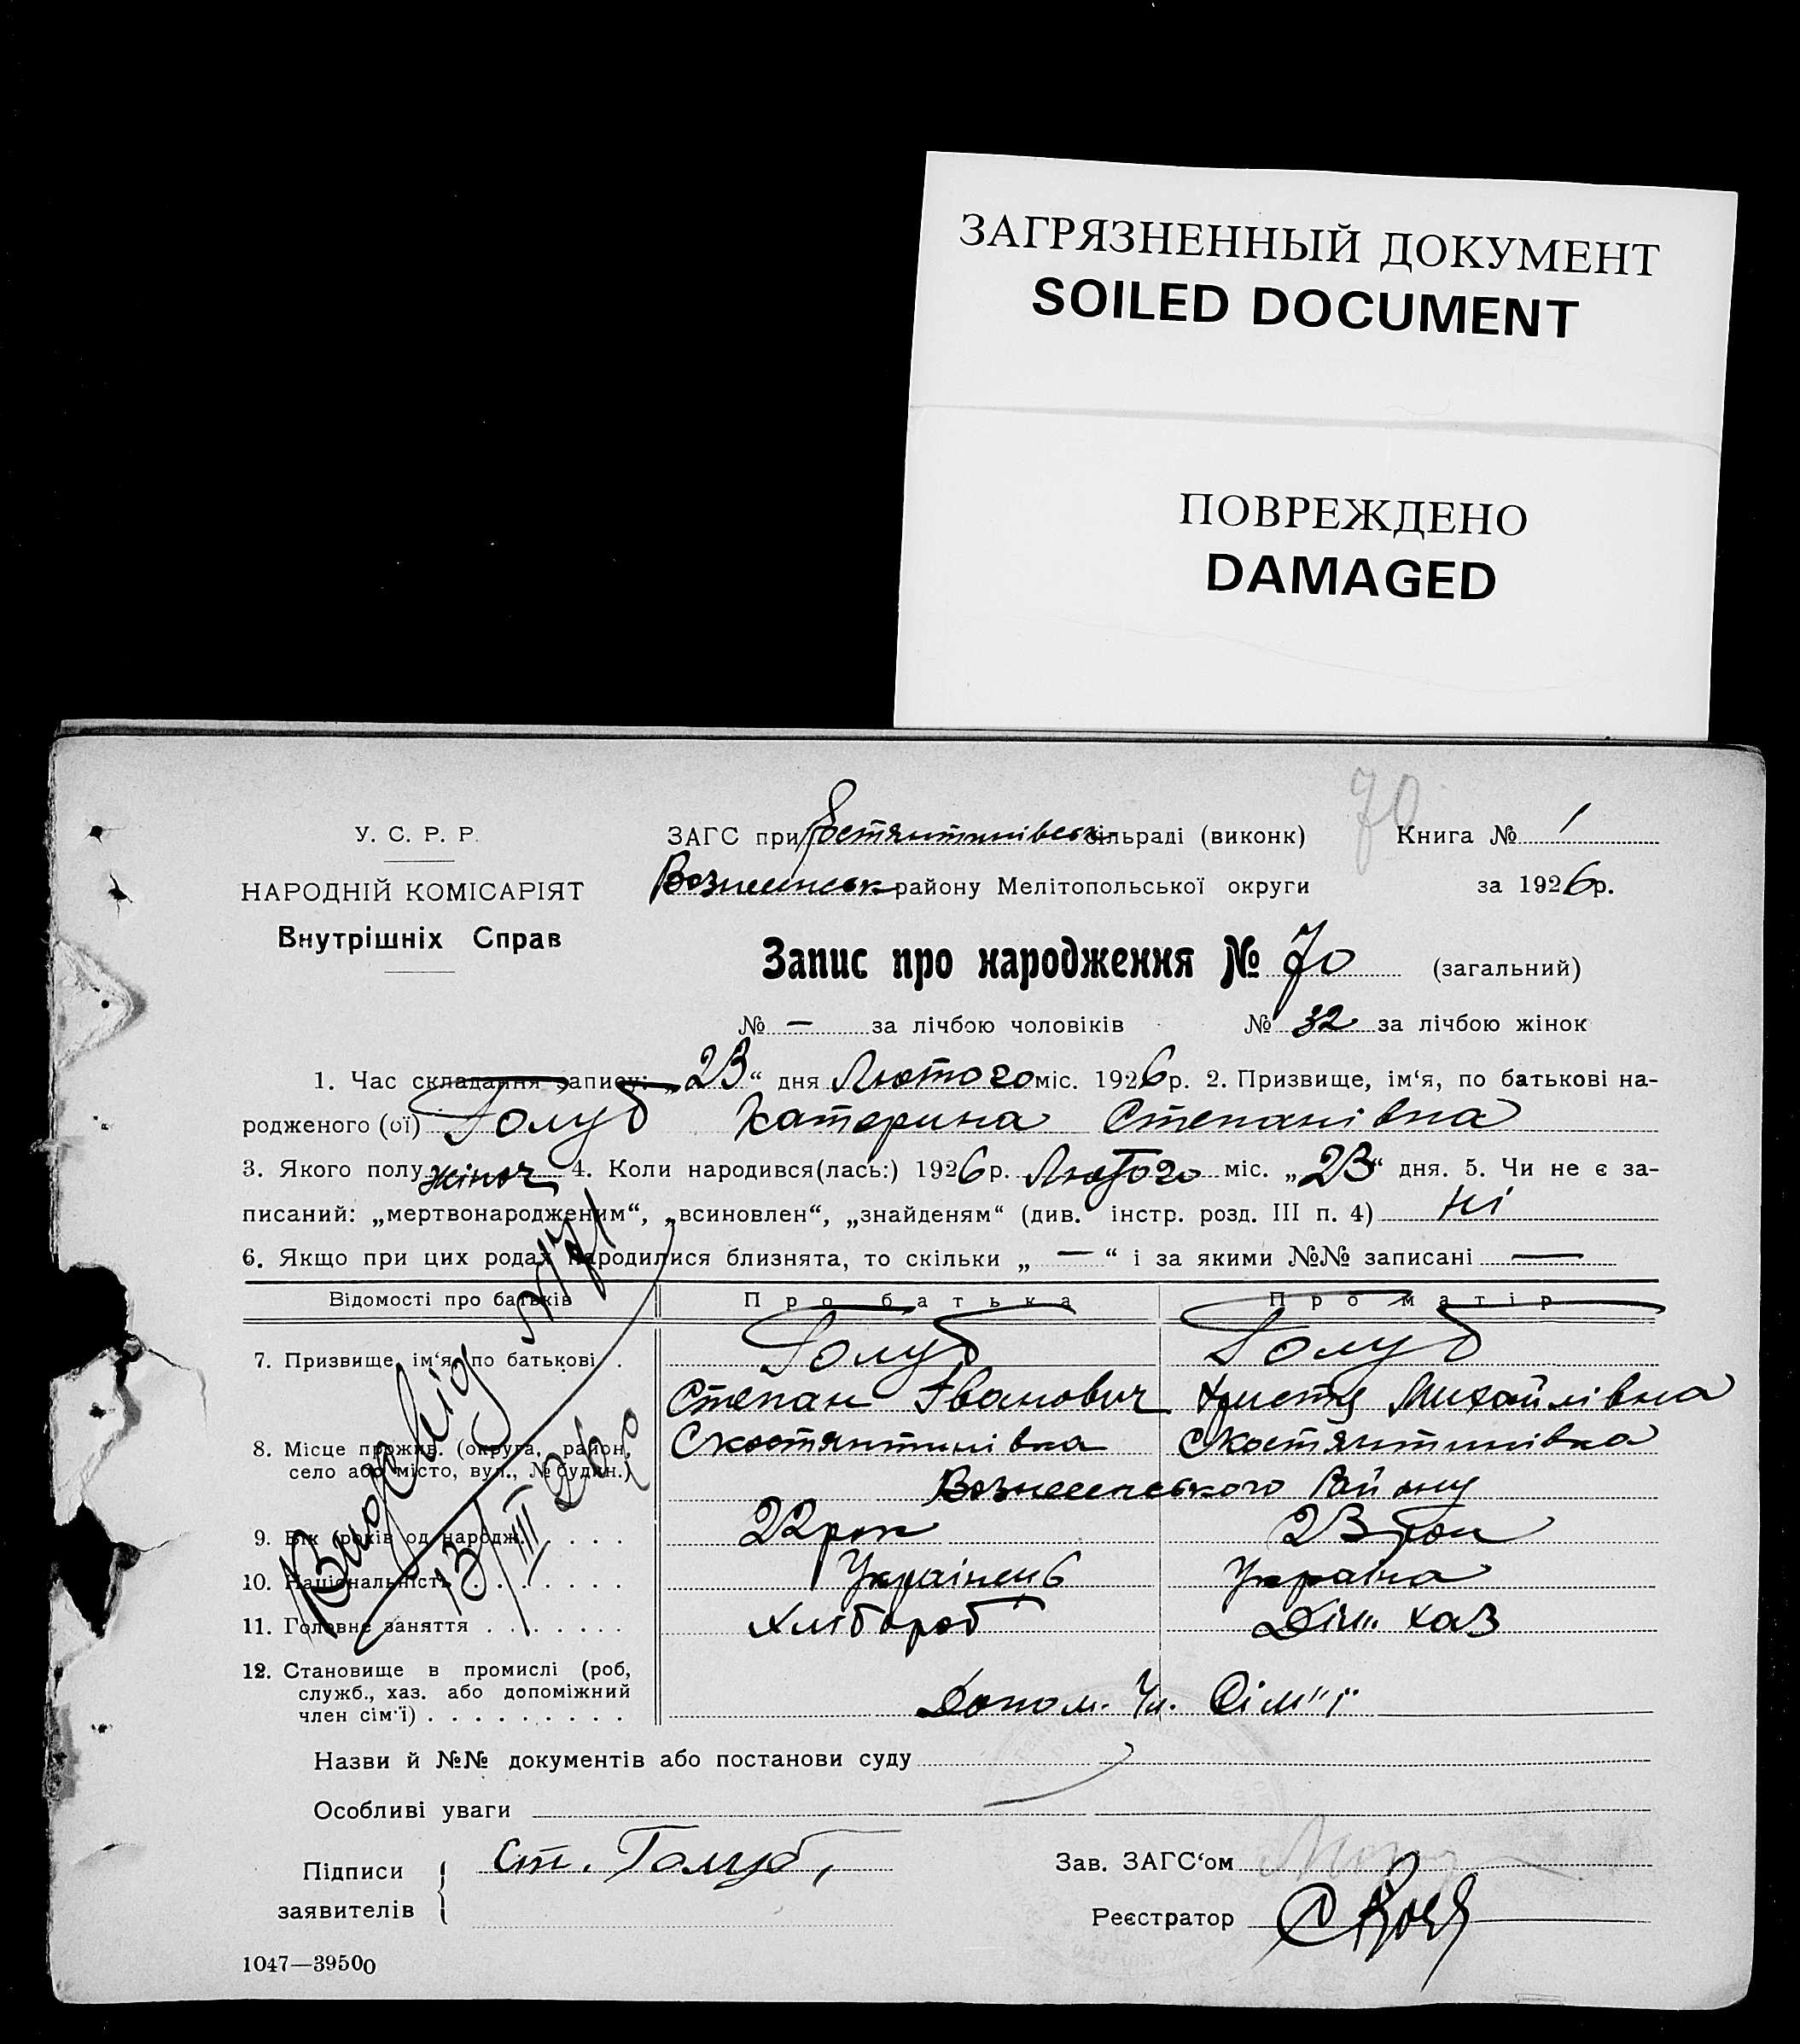 ЗАГРЯЗНЕННЫЙ ДОКУМЕНТ
SOILED DOCUMENT
ПОВРЕЖДЕНО
DAMAGED
70
У. С. Р. Р.
НАРОДНІЙ КОМІСАРІЯТ
Внутрішніх Справ
ЗАГС при Костянтинівськ сільраді (виконк)
Книга № 1
Вознесенськ району Мелітопольської округи
за 1926 р.
Запис про народження № 70 (загальний)
№ — за лічбою чоловіків № 32 за лічбою жінок
1. Час складання запису: „23“ дня Лютого міс. 1926 р. 2. Призвище, ім‘я, по батькові на-
родженого (ої) Голуб Катерина Степанівна
3. Якого полу жіноч 4. Коли народився(лась:) 1926 р. Лютого міс. „23“ дня. 5. Чи не є за-
писаний: „мертвонародженим“, „всиновлен“, „знайденям“ (див. інстр. розд. III п. 4) ні
6. Якщо при цих родах народилися близнята, то скільки „ — “ і за якими №№ записані —
Відомості про батьків Про батька Про матір
7. Призвище, ім‘я, по батькові . Голуб Голуб
Степан Іванович Христя Михайлівна
8. Місце прожив. (округа, район, село або місто, вул., № будин.) С Костянтинівка С Костянтинівка
Вознесенського Району
9. Вік (років од народж. . . . . 22 рок 23 рок
10. Національність . . . . . . . Українець Українка
11. Головне заняття . . . . . . . Хлібороб Дом. хаз
12. Становище в промислі (роб,
служб., хаз. або допоміжний
член сім‘ї) . . . . . . . . . Допом. Чл. Сім"ї
13/III 26 р
Назви й №№ документів або постанови суду
Особливі уваги
Підписи
заявителів
Ст. Голуб,
Зав. ЗАГС‘ом
Реєстратор
1047—39500